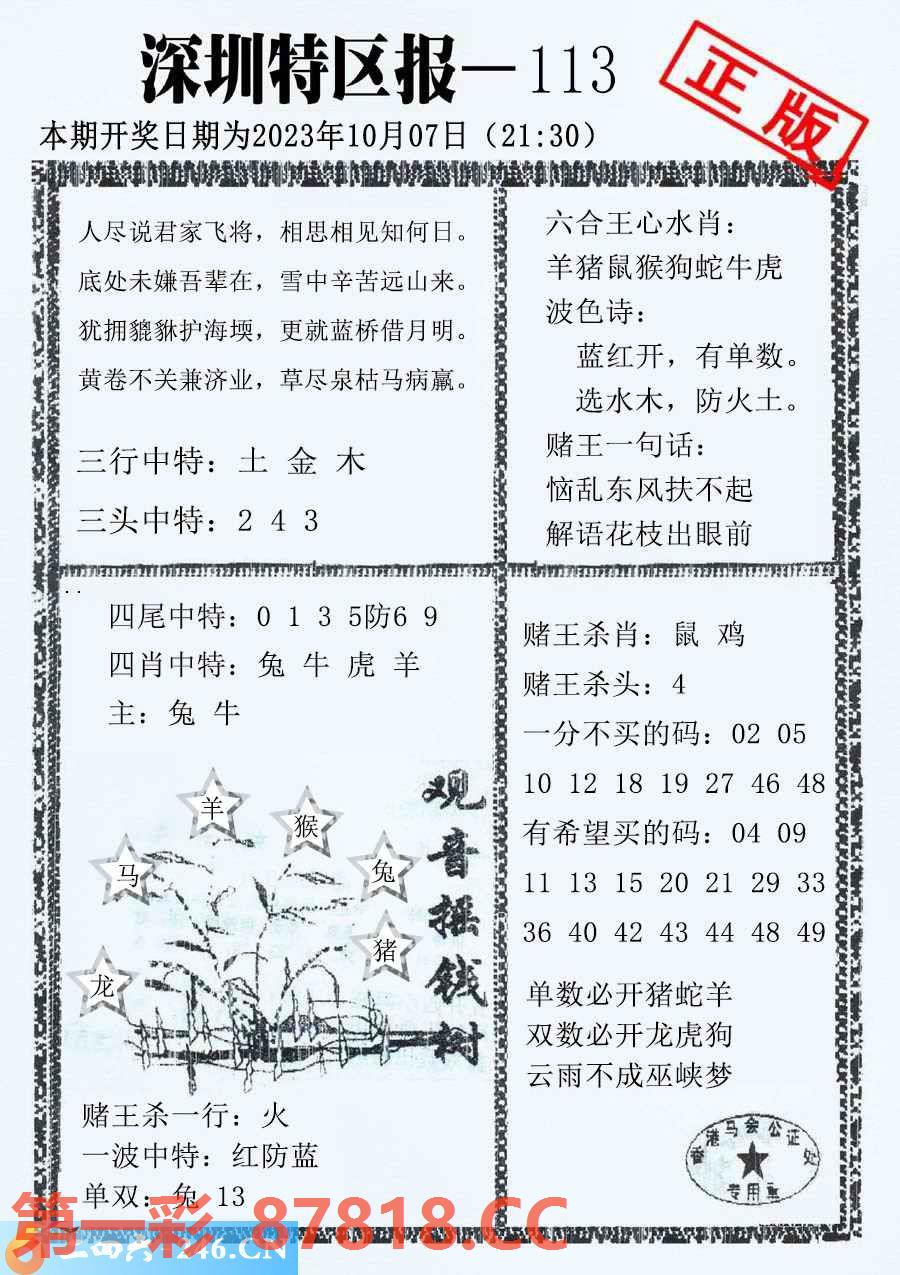 深圳特区报—113
正版
本期开奖日期为2023年10月07日（21:30）
人尽说君家飞将，相思相见知何日。
底处未嫌吾辈在，雪中辛苦远山来。
犹拥貔貅护海堧，更就蓝桥借月明。
黄卷不关兼济业，草尽泉枯马病羸。
三行中特：土 金 木
三头中特：2 4 3
六合王心水肖：
羊猪鼠猴狗蛇牛虎
波色诗：
蓝红开，有单数。
选水木，防火土。
赌王一句话：
恼乱东风扶不起
解语花枝出眼前
四尾中特：0 1 3 5防6 9
四肖中特：兔 牛 虎 羊
主：兔 牛
羊
猴
马
兔
猪
龙
观音摇钱树
赌王杀一行：火
一波中特：红防蓝
单双：兔 13
赌王杀肖：鼠 鸡
赌王杀头：4
一分不买的码：02 05
10 12 18 19 27 46 48
有希望买的码：04 09
11 13 15 20 21 29 33
36 40 42 43 44 48 49
单数必开猪蛇羊
双数必开龙虎狗
云雨不成巫峡梦
香港马会公证处
专用章
第一彩 87818.CC
246.CN